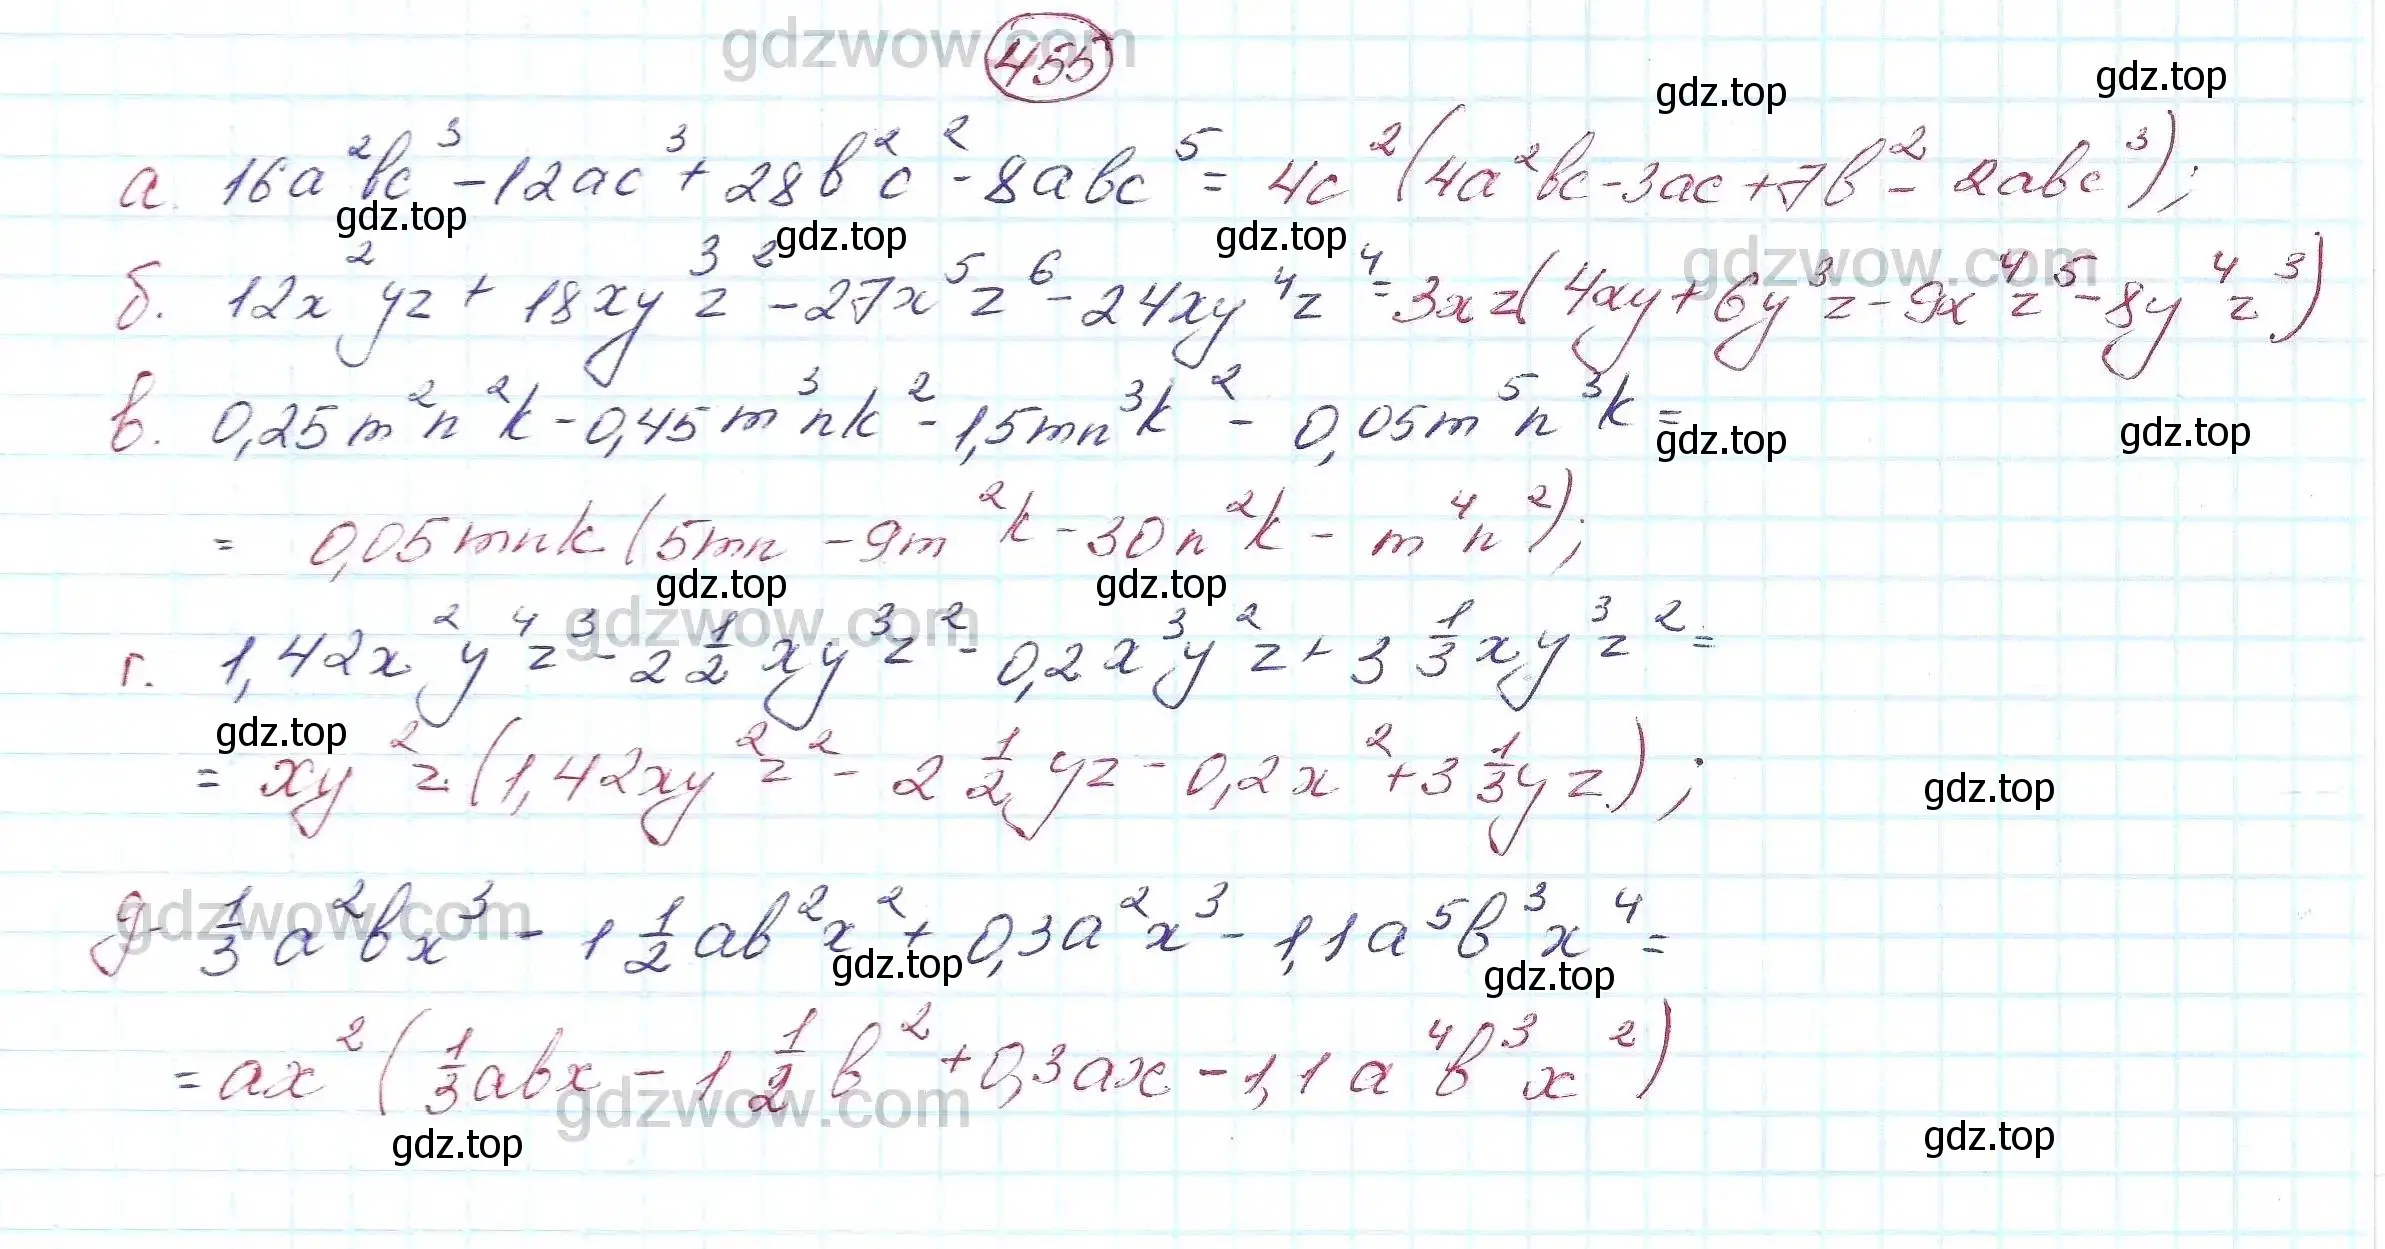 gdzwow.com
455
gdz.top gdz.top
а. 16a²bc³ - 12ac³ + 28b²c² - 8abc⁵ = 4c²(4a²bc - 3ac + 7b² - 2abc³);
gdz.top gdz.top gdz.top gdzwow.com
б. 12x²yz + 18xy³z² - 27x⁵z⁶ - 24xy⁴z⁴ = 3xz(4xy + 6y³z - 9x⁴z⁵ - 8y⁴z³)
в. 0,25m²n²k - 0,45m³nk² - 1,5mn³k² - 0,05m⁵n³k =
gdz.top gdz.top
= 0,05mnk(5mn - 9m²k - 30n²k - m⁴n²);
gdz.top gdz.top
gdzwow.com
г. 1,42x²y⁴z³ - 2 1/2 xy³z² - 0,2x³y²z + 3 1/3 xy³z² =
gdz.top
= xy²z(1,42xy²z² - 2 1/2 yz - 0,2x² + 3 1/3 yz);
gdz.top
gdzwow.com
д. 1/3 a²bx³ - 1 1/2 ab²x² + 0,3a²x³ - 1,1a⁵b³x⁴ =
gdz.top gdz.top
= ax²(1/3 abx - 1 1/2 b² + 0,3ax - 1,1a⁴b³x²)
gdzwow.com
gdz.top gdz.top